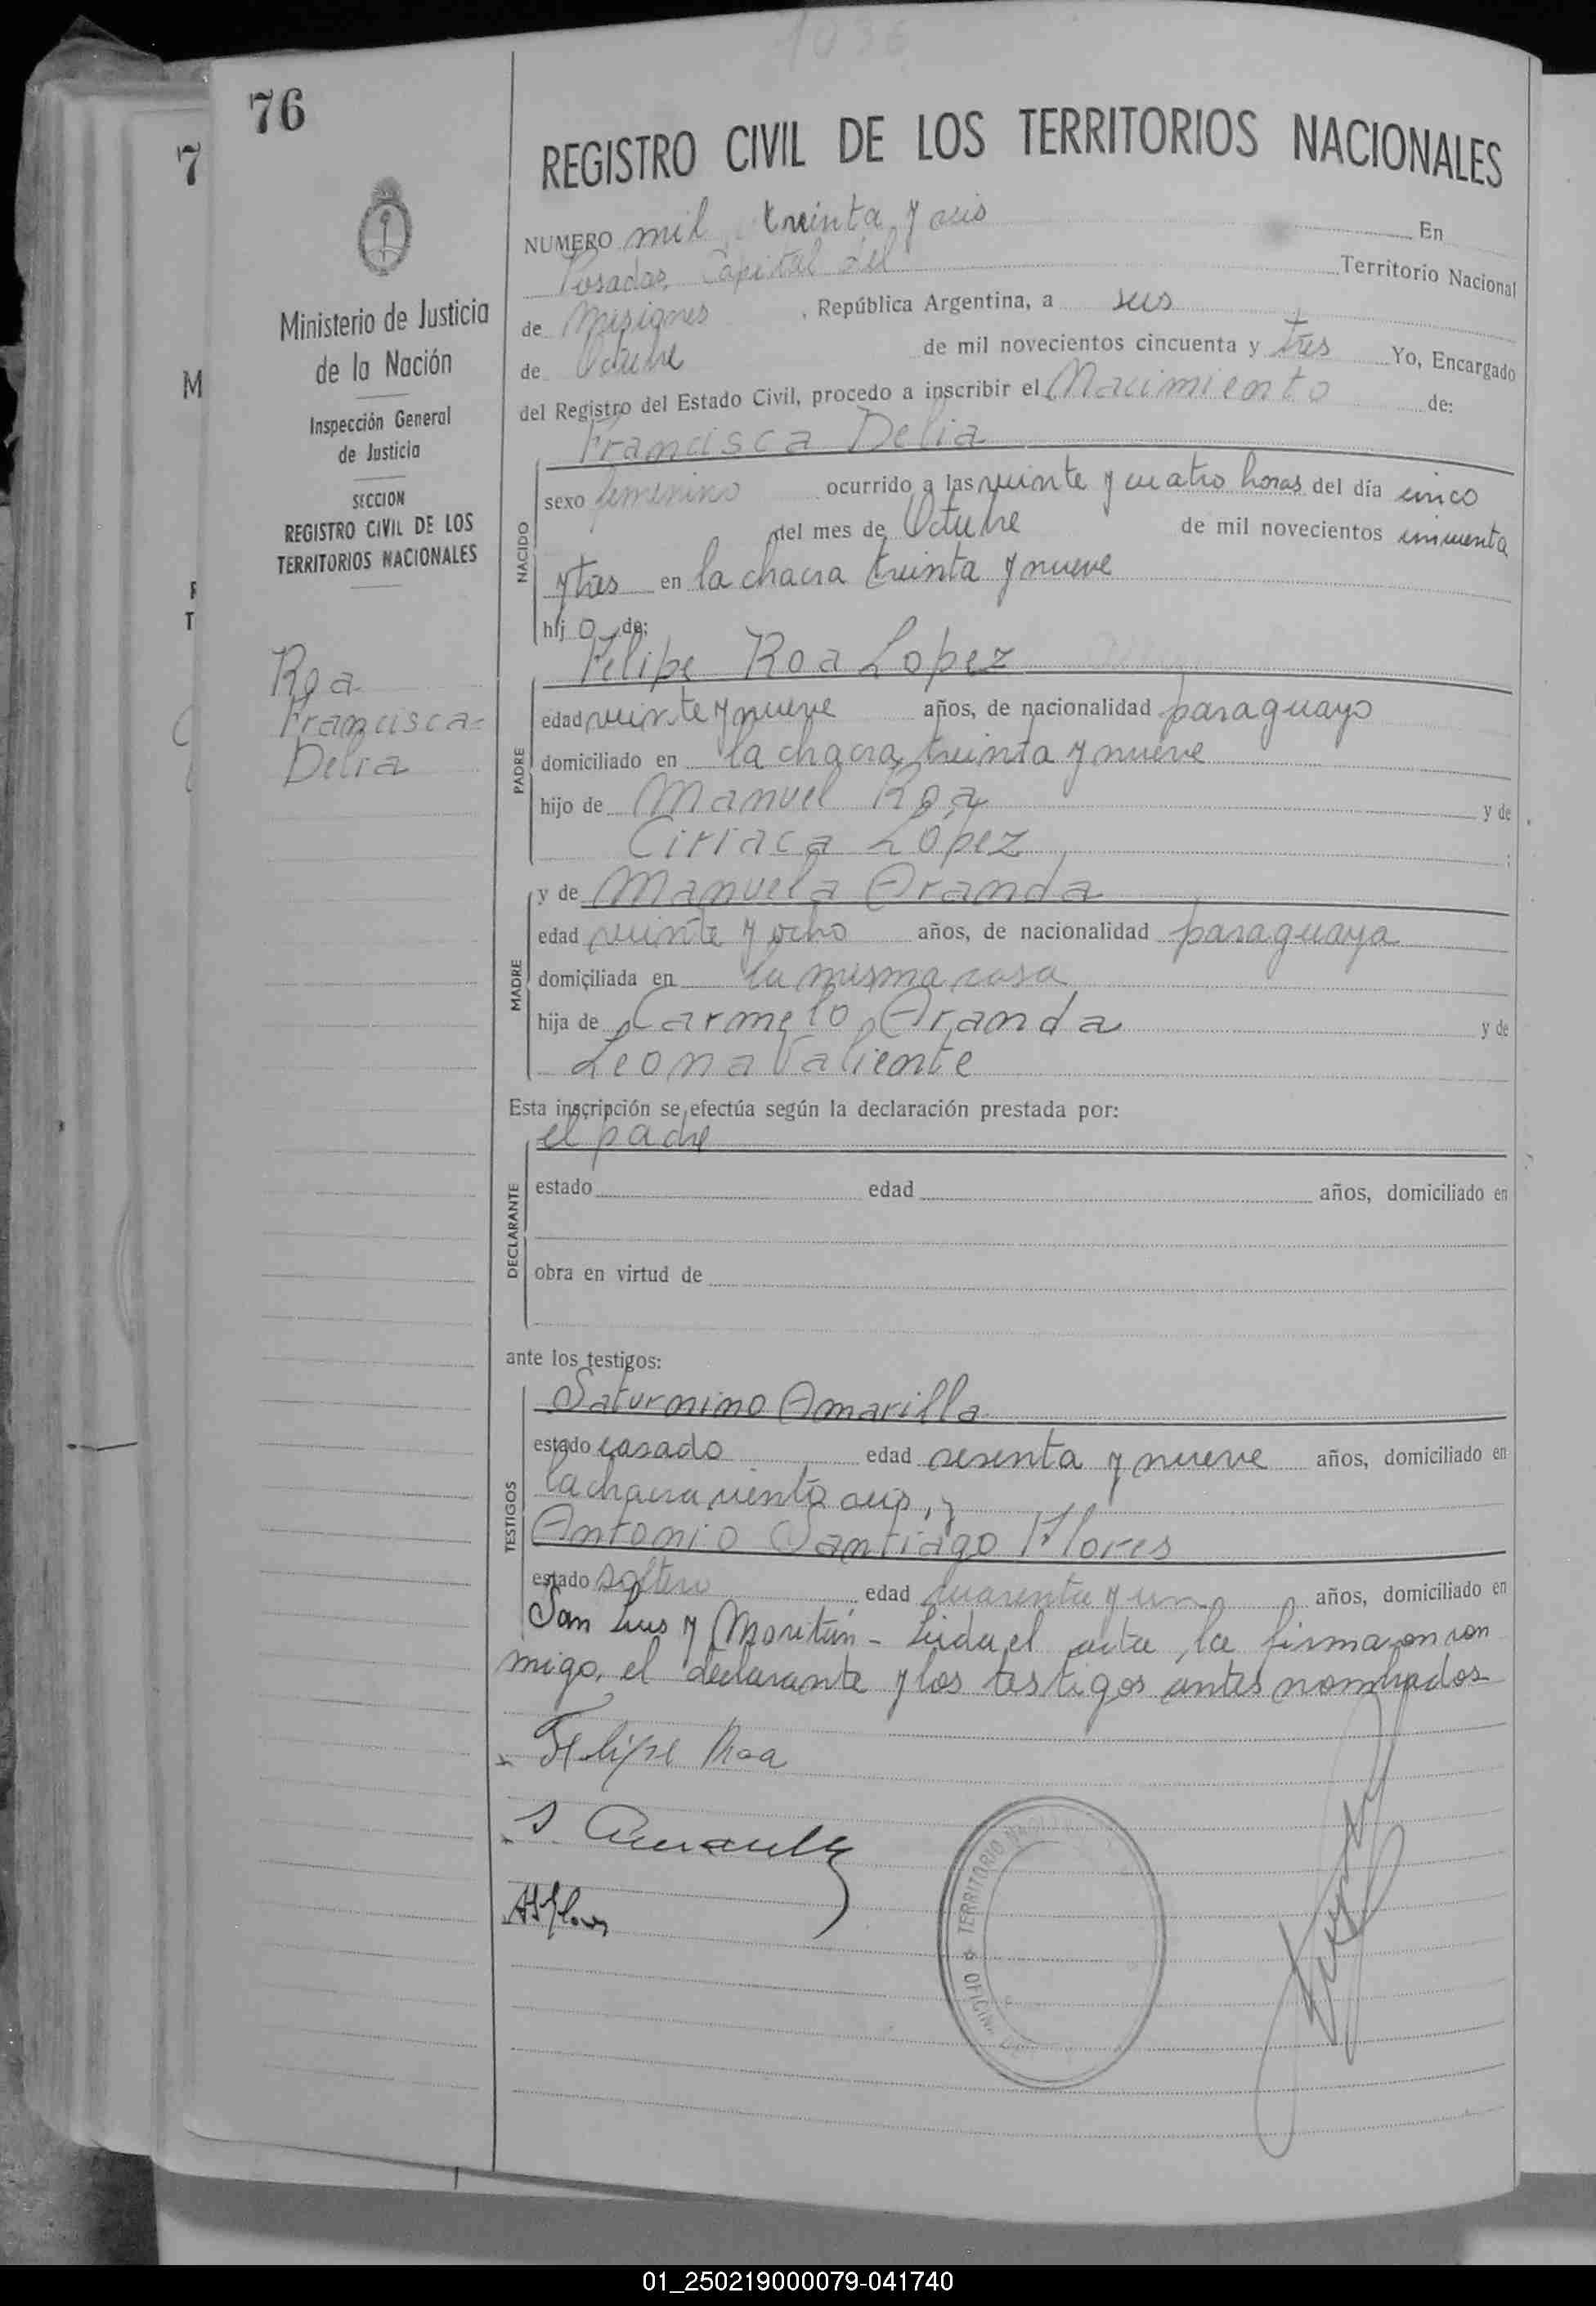 1036
76
7
REGISTRO CIVIL DE LOS TERRITORIOS NACIONALES
Ministerio de Justicia
de la Nación
Inspección General
de Justicia
SECCION
REGISTRO CIVIL DE LOS
TERRITORIOS NACIONALES
M
T
Roa
Francisca=
Delia
NUMERO mil treinta y seis En
Posadas, Capital del Territorio Nacional
de Misiones, República Argentina, a seis
de Octubre de mil novecientos cincuenta y tres Yo, Encargado
del Registro del Estado Civil, procedo a inscribir el Nacimiento de:
Francisca Delia
NACIDO
sexo femenino ocurrido a las veinte y cuatro horas del día cinco
del mes de Octubre de mil novecientos cincuenta
y tres en la chacra treinta y nueve
hij o de:
Felipe Roa Lopez
PADRE
edad veinte y nueve años, de nacionalidad paraguayo
domiciliado en la chacra treinta y nueve
hijo de Manuel Roa y de
Ciriaca López ;
MADRE
y de Manuela Aranda
edad veinte y ocho años, de nacionalidad paraguaya
domiciliada en la misma casa
hija de Carmelo Aranda y de
Leona Valiente
Esta inscripción se efectúa según la declaración prestada por:
el padre
DECLARANTE
estado edad años, domiciliado en
obra en virtud de
ante los testigos:
TESTIGOS
Saturnino Amarilla
estado casado edad sesenta y nueve años, domiciliado en
la chacra ciento seis, y
Antonio Santiago Flores
estado soltero edad cuarenta y uno años, domiciliado en
San Luis y Moritán - Leida el acta, la firmaron con
migo, el declarante y los testigos antes nombrados
Felipe Roa
S. Amarilla
ASFlores
TERRITORIO
OFICINA
01_250219000079-041740